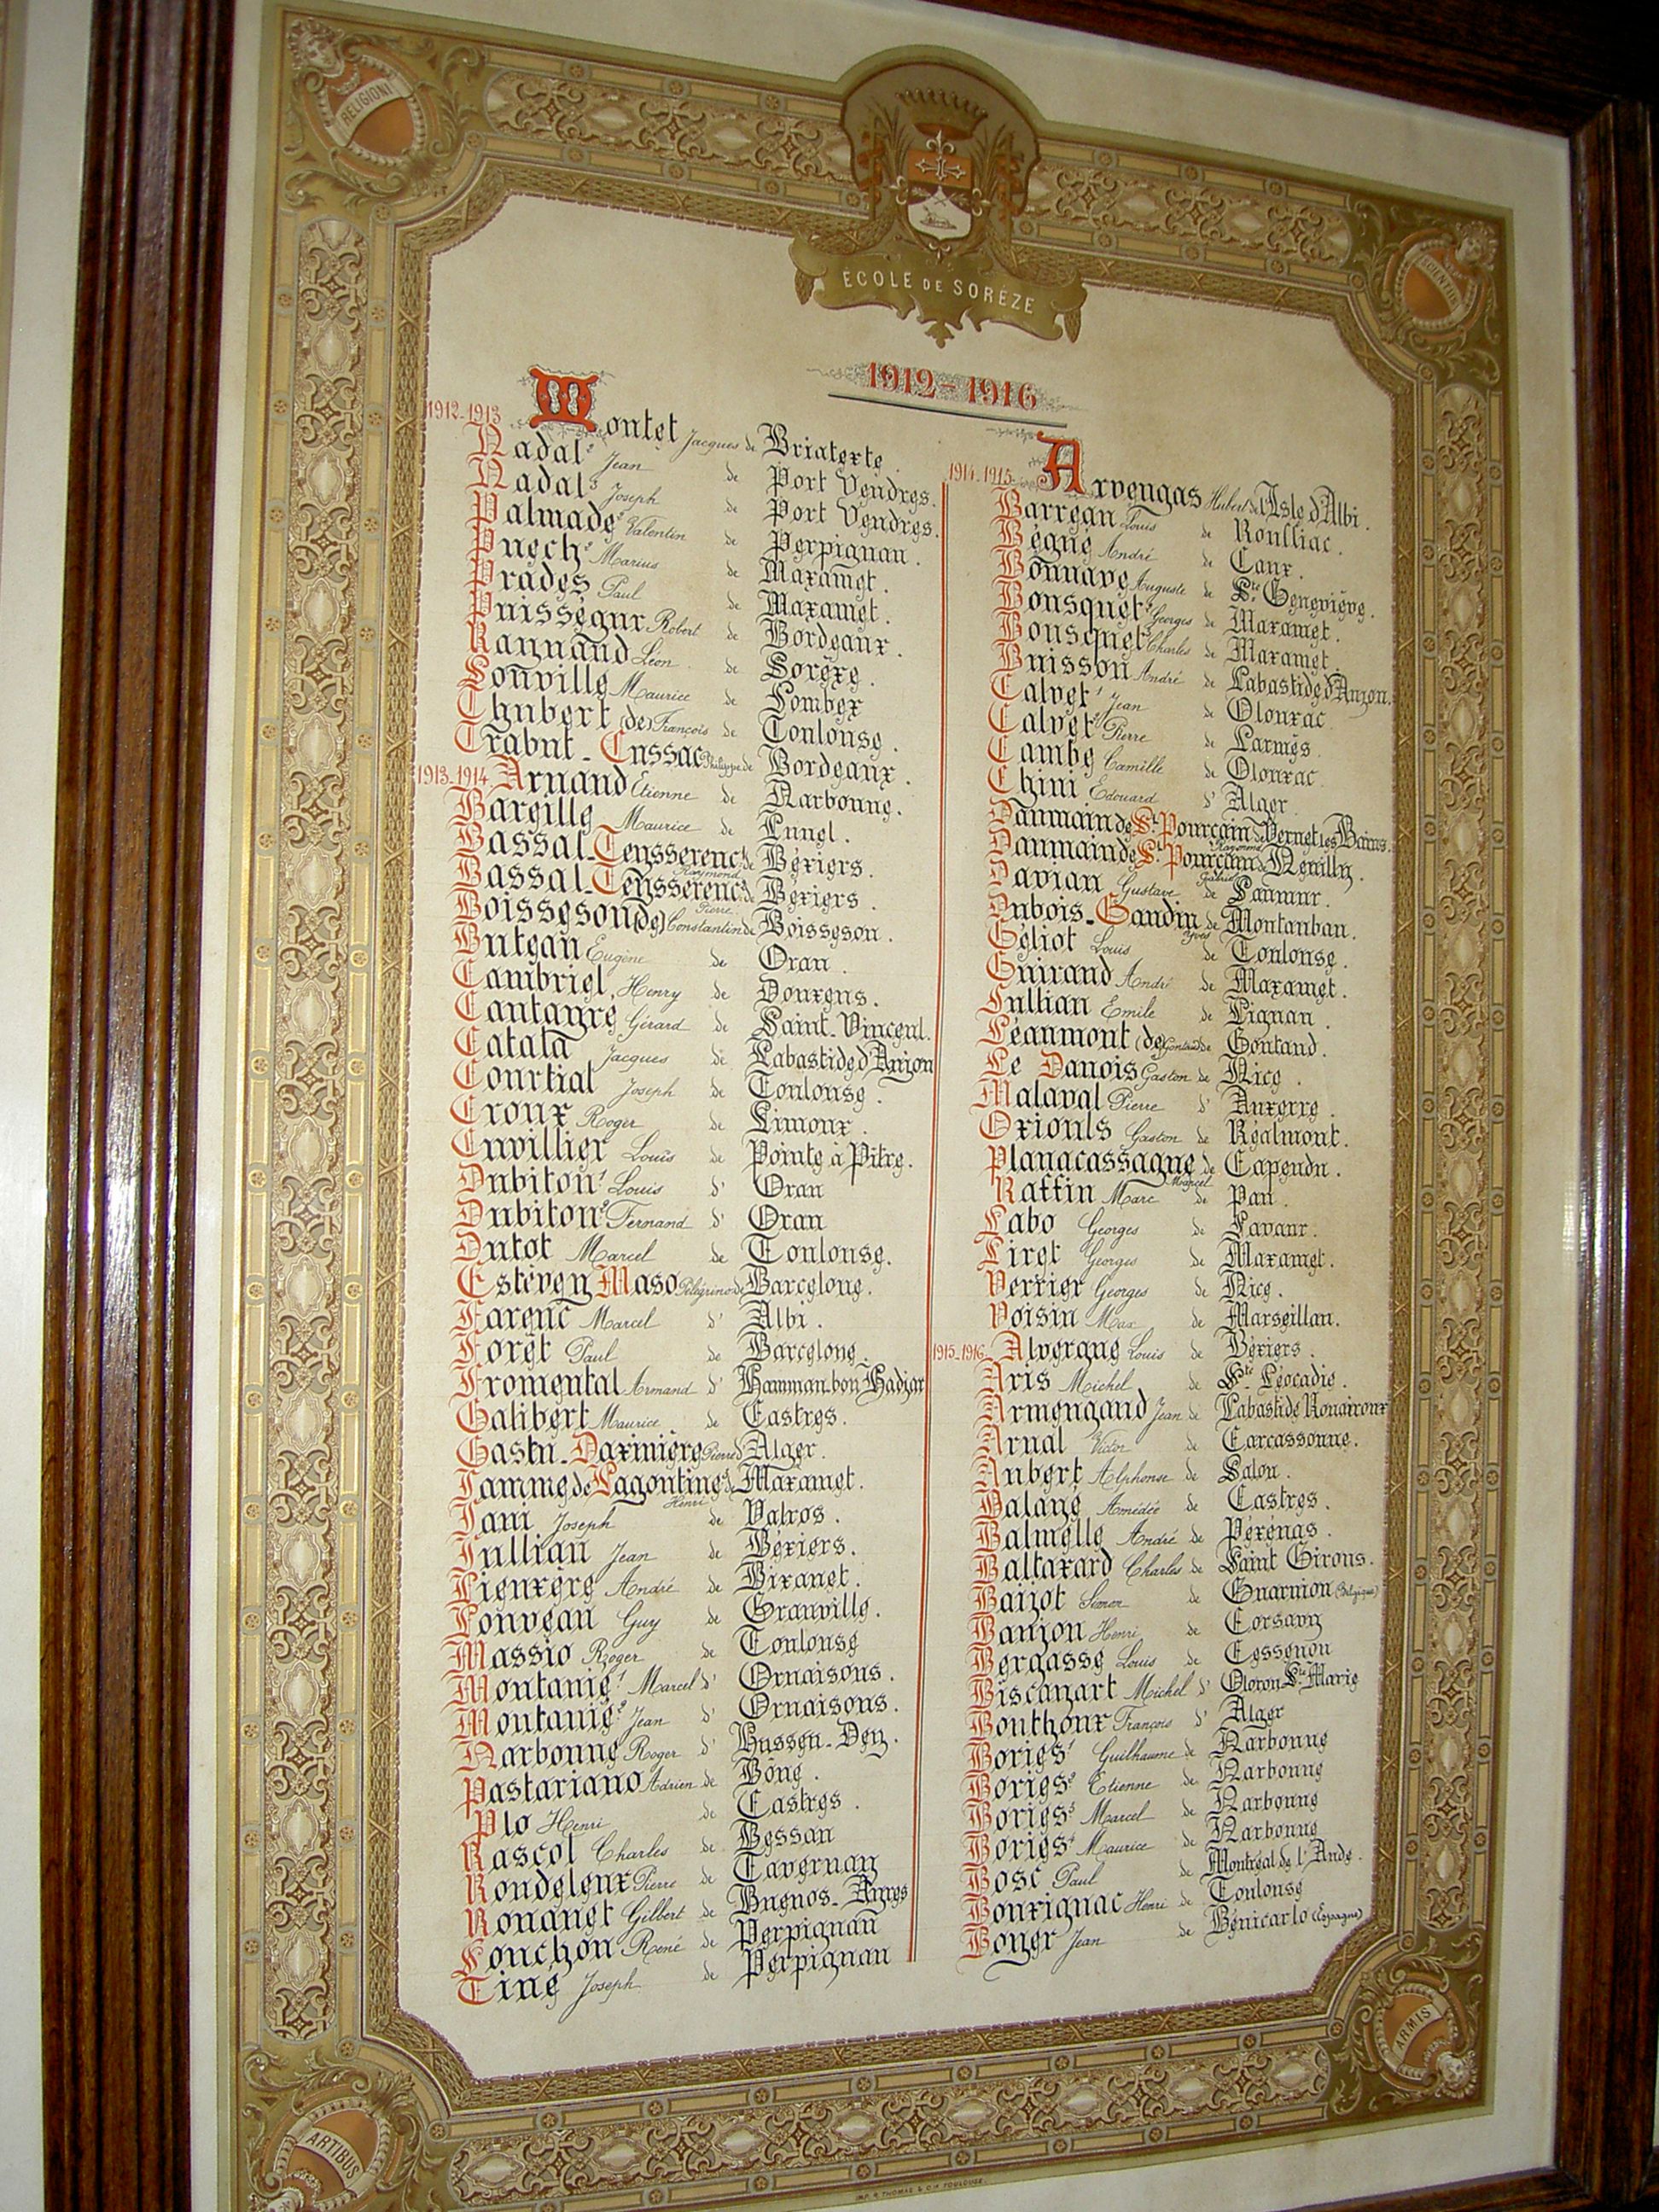 RELIGIONI
SCIENTIIS
ÉCOLE DE SORÈZE
1912-1916
1912-1913 Montet Jacques de Briatexte.
Nadal² Jean de Port Vendres.
Nadal³ Joseph de Port Vendres.
Palmade² Valentin de Perpignan.
Puech² Marius de Mazamet.
Prades Paul de Mazamet.
Puisségur Robert de Bordeaux.
Rannand Léon de Sorèze.
Sonville Maurice de Lombez
Thubert (de) François de Toulouse.
Trabut-Cussac Philippe de Bordeaux.
1913-1914 Arnaud Etienne de Narbonne.
Bareille Maurice de Lunel.
Bassal-Teysserenc Raymond de Béziers.
Bassal-Teysserenc Pierre de Béziers.
Boisseson (de) Constantin de Boisseson.
Butean Eugène de Oran.
Cambriel Henry de Douzens.
Cantayre Gérard de Saint-Vincent.
Catala Jacques de Labastide d'Anjou
Courtial Joseph de Toulouse.
Croux Roger de Limoux.
Cuvillier Louis de Pointe à Pitre.
Dubiton¹ Louis d' Oran
Dubiton² Fernand d' Oran
Dutot Marcel de Toulouse.
Esteven Maso Pélégrino de Barcelone.
Farenc Marcel d' Albi.
Forêt Paul de Barcelone.
Fromental Armand d' Hamman-bou Hadjar
Galibert Maurice de Castres.
Gastu-Daxinière Pierre d'Alger.
Jamme de Lagoutine Henri de Mazamet.
Jani Joseph de Valros.
Jullian Jean de Béziers.
Lieuzère André de Bizanet.
Lonvean Guy de Granville.
Massio Roger de Toulouse
Montanié¹ Marcel d' Ornaisons.
Montanié² Jean d' Ornaisons.
Narbonne Roger d' Hussen-Dey.
Pastariano Adrien de Bône.
Plo Henri de Castres.
Rascol Charles de Bessan
Rondeleux Pierre de Tavernay
Rouanet Gilbert de Buenos-Ayres
Souchon René de Perpignan
Tiné Joseph de Perpignan
1914-1915 Arvengas Hubert de l'Isle d'Albi.
Barreau Louis de Roulliac.
Bégué André de Caux.
Bonnave Auguste de Ste Geneviève.
Bousquet² Georges de Mazamet.
Bousquet³ Charles de Mazamet.
Buisson André de Labastide d'Anjou.
Calvet¹ Jean de Olonzac
Calvet² Pierre de Larmès
Cambe Camille de Olonzac
Chini Edouard d' Alger
Daumain de St Pourçain Raymond de Vernet les Bains.
Daumain de St Pourçain Gabriel de Neuilly.
Davian Gustave de Saumur.
Dubois-Gaudin Yves de Montauban.
Géliot Louis de Toulouse.
Guiraud André de Mazamet.
Jullian Emile de Pignan.
Léaumont (de) Gontran de Gontaud.
Le Danois Gaston de Nice.
Malaval Pierre d' Auxerre.
Ozionls Gaston de Réalmont.
Planacassagne Marcel de Capendu.
Raffin Marc de Pau.
Sabo Georges de Lavaur.
Siret Georges de Mazamet.
Verrier Georges de Nice.
Voisin Max de Marseillan.
1915-1916 Alvergne Louis de Béziers.
Aris Michel de Ste Léocadie.
Armengaud Jean de Labastide Rouairoux
Arnal Victor de Carcassonne.
Aubert Alphonse de Salon.
Balané Amédée de Castres.
Balmelle André de Pézénas.
Baltazard Charles de Saint Girons.
Baijot Simon de Guarnion (Belgique)
Banjou Henri de Corsavy
Bergasse Louis de Cessenon
Biscanart Michel d' Oloron Ste Marie
Bouthoux François d' Alger
Bories¹ Guilhaume de Narbonne
Bories² Etienne de Narbonne
Bories³ Marcel de Narbonne
Bories⁴ Maurice de Narbonne
Bosc Paul de Montréal de l'Aude.
Bourignac Henri de Toulouse
Boyer Jean de Bénicarlo (Espagne)
ARTIBUS
ARMIS
IMP. B. THOMAS & Cie TOULOUSE.